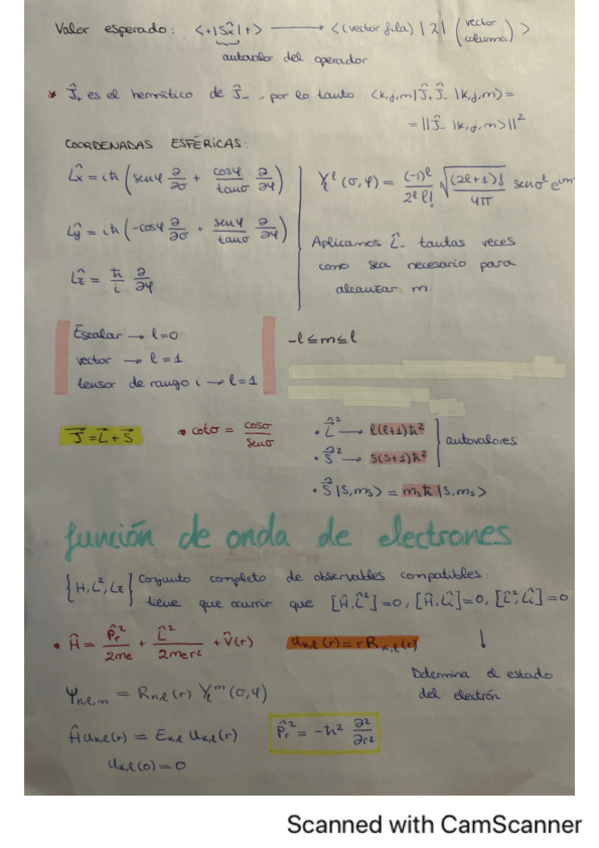 Valor esperado: <+|Ŝx|+> ⟶ <(vector fila)|λ|(vector columna)>
autovalor del operador
* Ĵ+ es el hermítico de Ĵ-, por lo tanto: <k,j,m|Ĵ+ Ĵ-|k,j,m> =
= ||Ĵ-|k,j,m>||²
COORDENADAS ESFÉRICAS:
L̂x = iħ (senφ ∂/∂θ + cosφ/tanθ ∂/∂φ)
L̂y = iħ (-cosφ ∂/∂θ + senφ/tanθ ∂/∂φ)
L̂z = ħ/i ∂/∂φ
Yₗˡ(θ,φ) = (-1)ˡ/2ˡ l! √((2l+1)!/4π) senθˡ e^im
Aplicamos L̂- tantas veces
como sea necesario para
alcanzar m.
Escalar → l=0
vector → l=1
tensor de rango i → l=1
-l ≤ m ≤ l
J⃗ = L⃗ + S⃗
* cotθ = cosθ/senθ
• L̂² ⟶ l(l+1)ħ²
• Ŝ² ⟶ s(s+1)ħ²
autovalores
• Ŝ|s,ms> = msħ|s,ms>
función de onda de electrones
{H, L², Lz} Conjunto completo de observables compatibles:
tiene que ocurrir que [Ĥ,L̂²]=0, [Ĥ,L̂z]=0, [L̂²,L̂z]=0
• Ĥ = P̂r²/2me + L̂²/2mer² + V̂(r)
uk,l(r) = r Rk,l(r)
↓
Determina el estado
del electrón
Ψn,l,m = Rn,l(r) Yₗᵐ(θ,φ)
Ĥ uk,l(r) = Ek,l uk,l(r)
P̂r² = -ħ² ∂²/∂r²
uk,l(0) = 0
Scanned with CamScanner